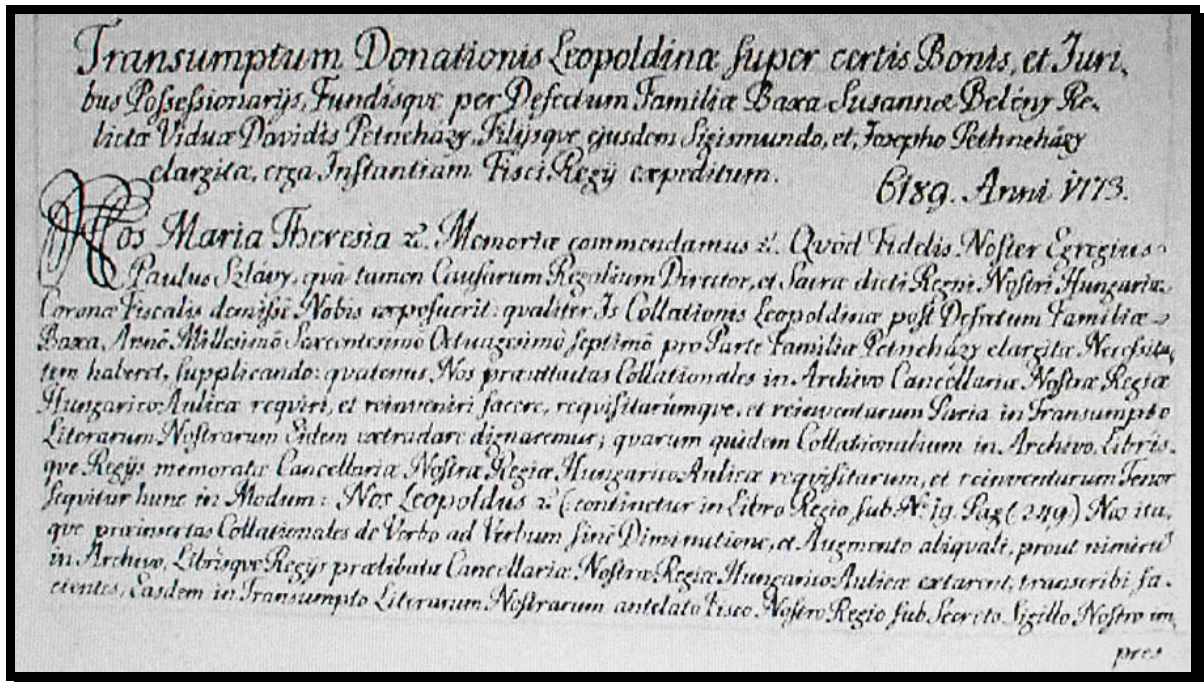 Transumptum Donationis Leopoldinæ super certis Bonis, et Juri,
bus Possessionarijs, Fundisque per Defectum Familiæ Baxa Susannæ Belény Re,
lictæ Viduæ Davidis Petneházy, Filijsque ejusdem Sigismundo, et, Josepho Pethneházy
elargita, erga Instantiam Fisci Regij expeditum.
6189. Anni 1773.
Nos Maria Theresia &. Memoriæ commendamus &. Quòd Fidelis Noster Egregius
Paulus Szlávy, quà tamen Causarum Regalium Director, et Sacræ dicti Regni Nostri Hungariæ
Coronæ Fiscalis demisse Nobis exposuerit: qualiter Is Collationis Leopoldinæ post Defectum Familiæ
Baxa, Annô Millesimô Sexcentesimô Octuagesimô septimô pro Parte Familiæ Petneházy elargitæ Necessita,
tem haberet, supplicando: quatenus Nos præattactas Collationales in Archivo Cancellariæ Nostræ Regiæ
Hungarico Aulicæ requiri, et reinveniri facere, requisitarúmque, et reinventarum Paria in Transumpto
Literarum Nostrarum Eidem extradare dignaremur; quarum quidem Collationalium in Archivo, Libris,
que Regijs memoratæ Cancellariæ Nostræ Regiæ Hungarico Aulicæ requisitarum, et reinventarum Tenor
sequitur hunc in Modum: Nos Leopoldus & (: continetur in Libro Regio sub Nr. 19. Pag (249) Nos ita,
que præinsertas Collationales de Verbo ad Verbum sine Diminutione, et Augmento aliquali, prout nimirū
in Archivo, Librisque Regijs prælibatæ Cancellariæ Nostræ Regiæ Hungarico Aulicæ extarent, transcribi fa,
cientes, Easdem in Transumpto Literarum Nostrarum antelato Fisco Nostro Regio sub Secreto Sigillo Nostro im,
pres